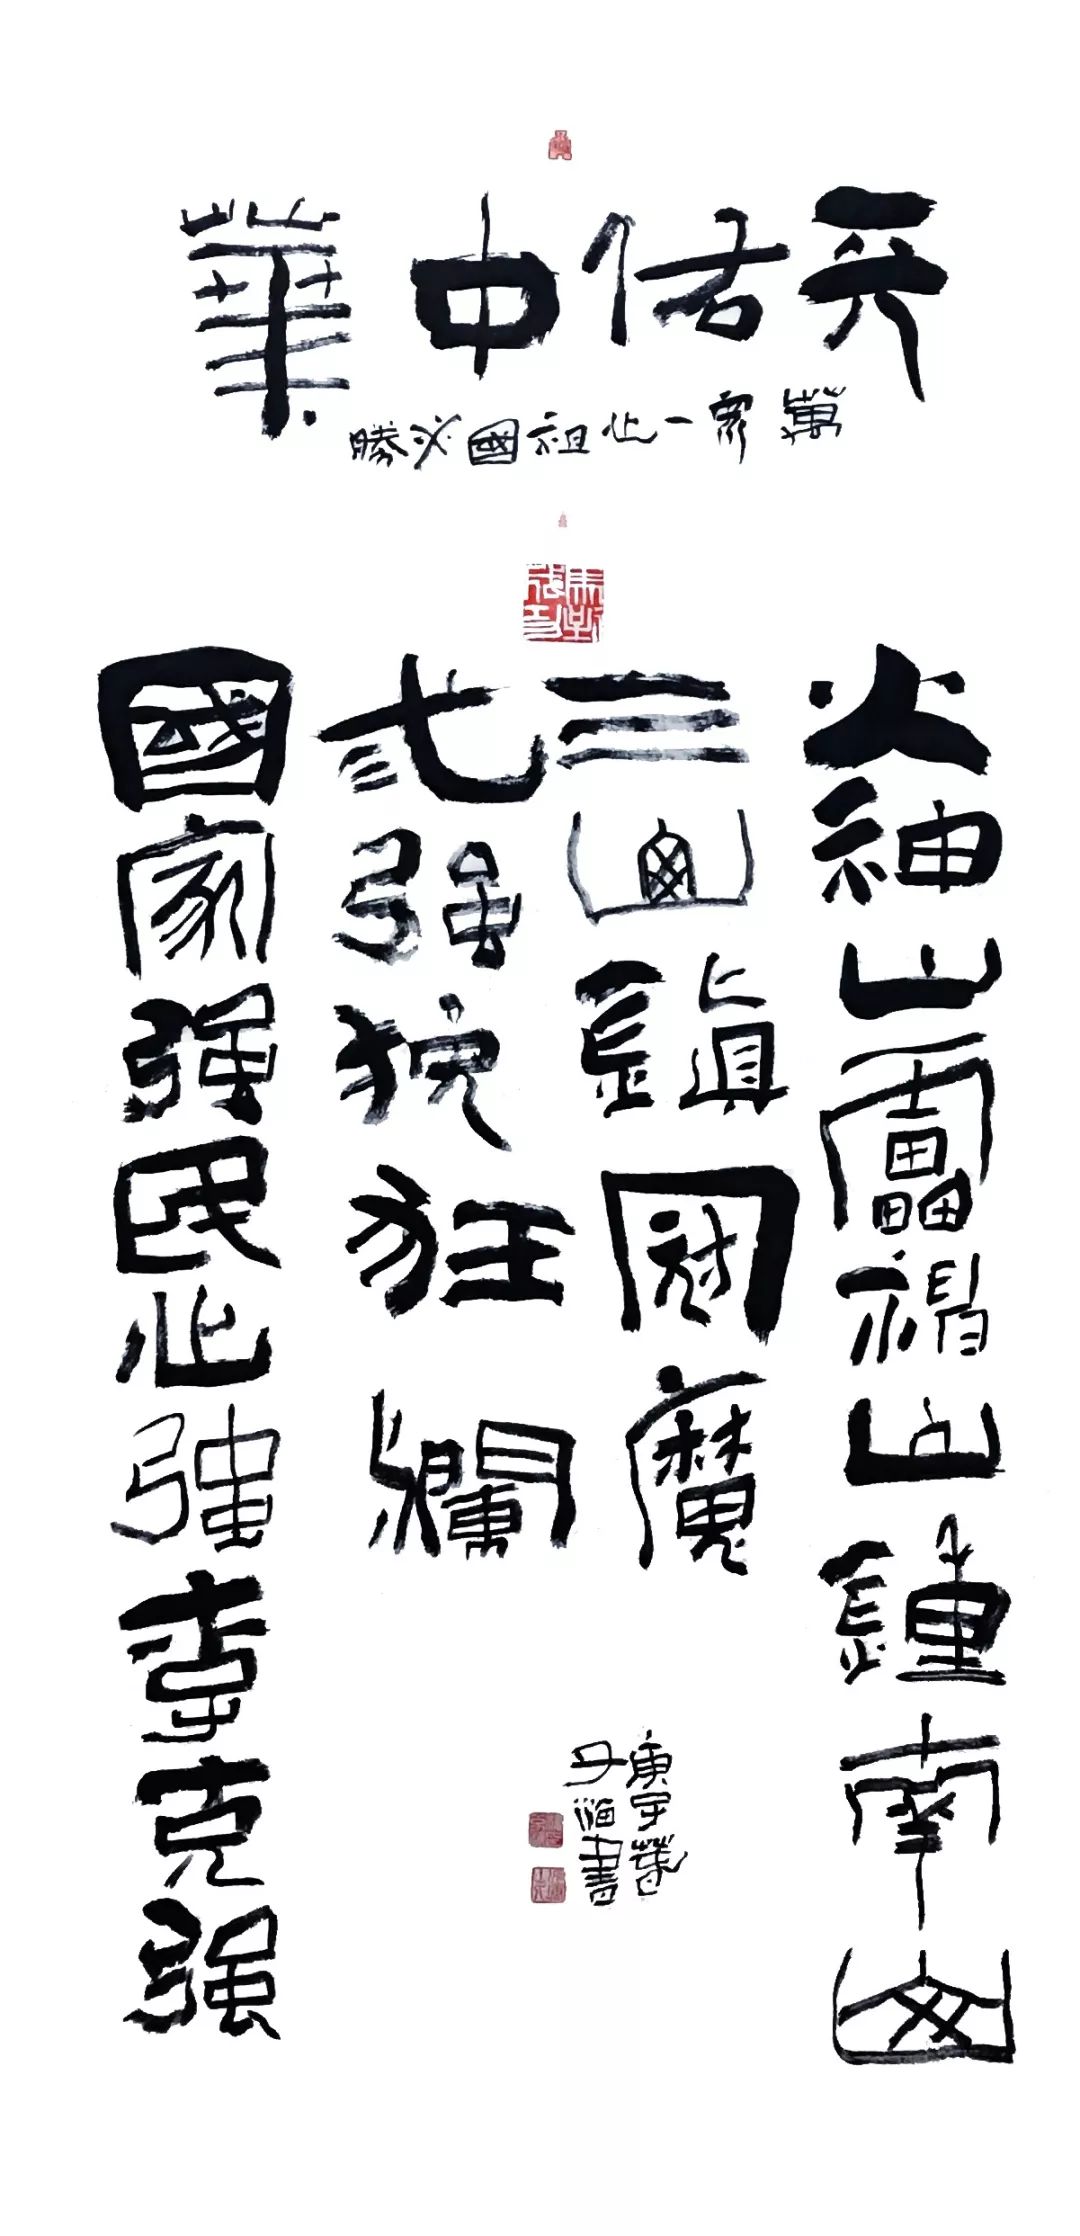 天佑中華
萬眾一心祖國必勝
火神山雷神山鍾南山
三山鎮冠魔
弎強挽狂瀾
國家強民心強李克强
庚子春
子海書